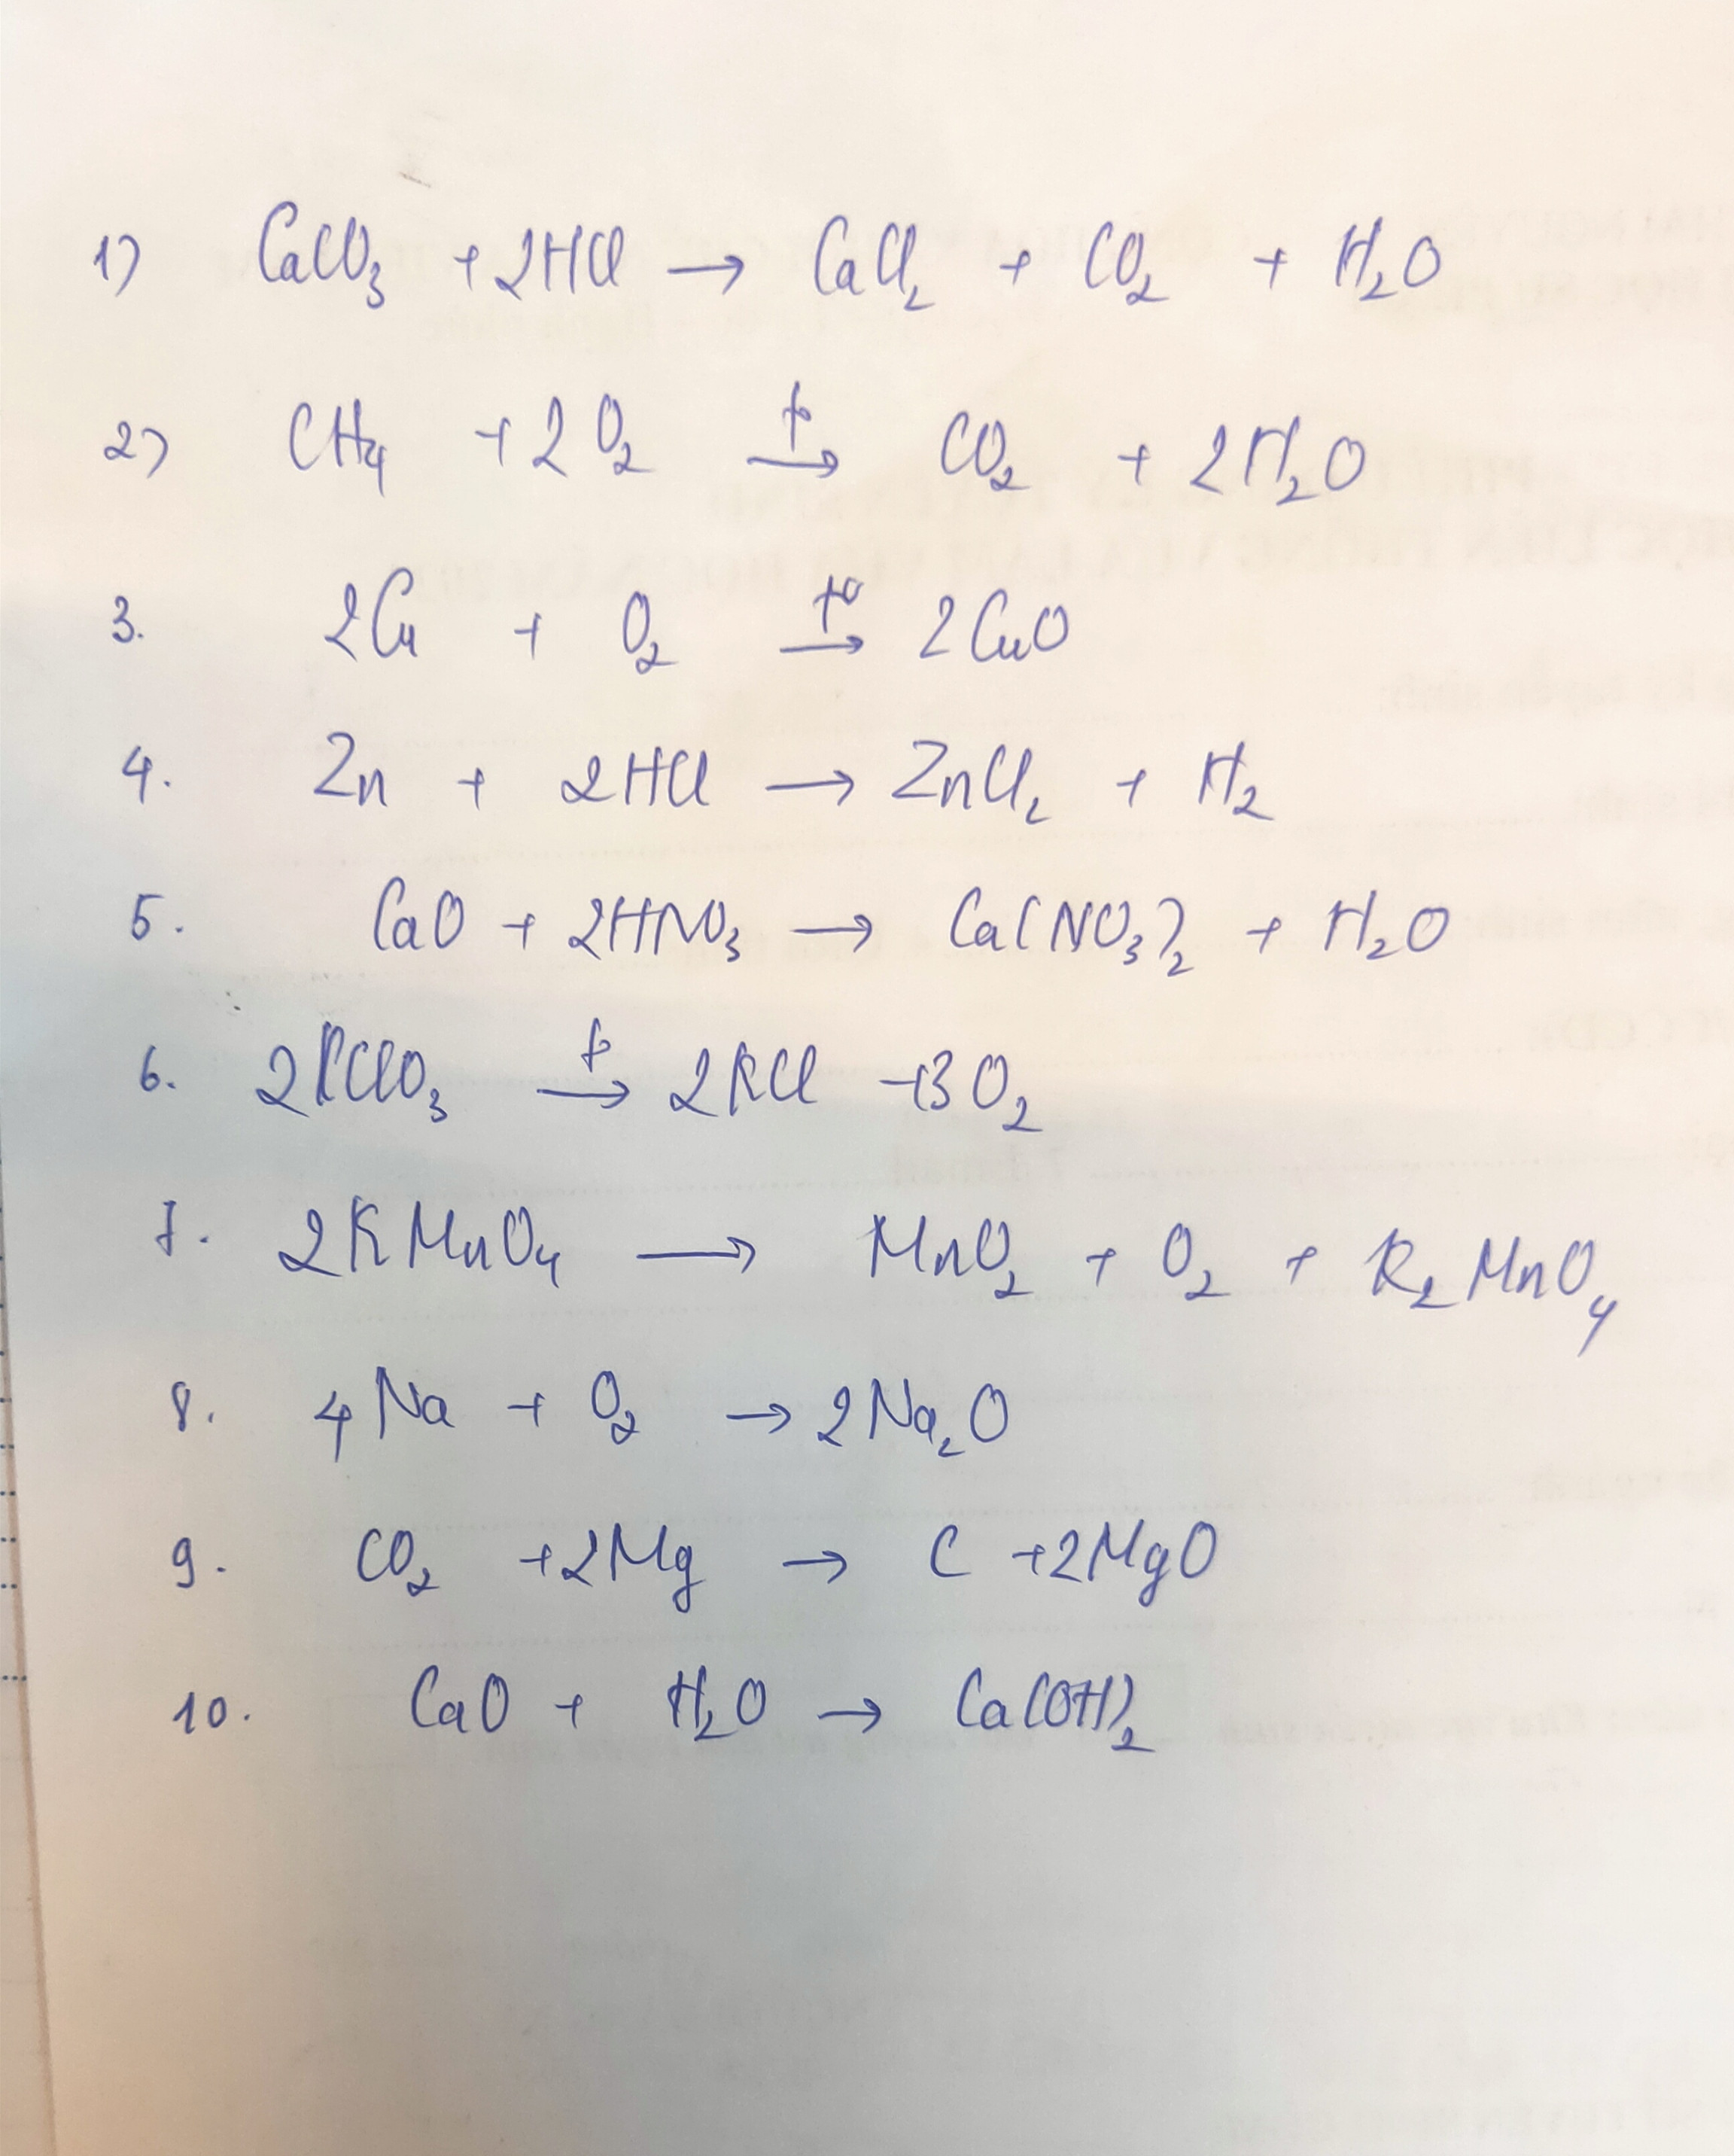 1) CaCO₃ + 2HCl → CaCl₂ + CO₂ + H₂O
2) CH₄ + 2O₂ →(t°) CO₂ + 2H₂O
3. 2Cu + O₂ →(t°) 2CuO
4. Zn + 2HCl → ZnCl₂ + H₂
5. CaO + 2HNO₃ → Ca(NO₃)₂ + H₂O
6. 2KClO₃ →(t°) 2KCl + 3O₂
7. 2KMnO₄ → MnO₂ + O₂ + K₂MnO₄
8. 4Na + O₂ → 2Na₂O
9. CO₂ + 2Mg → C + 2MgO
10. CaO + H₂O → Ca(OH)₂